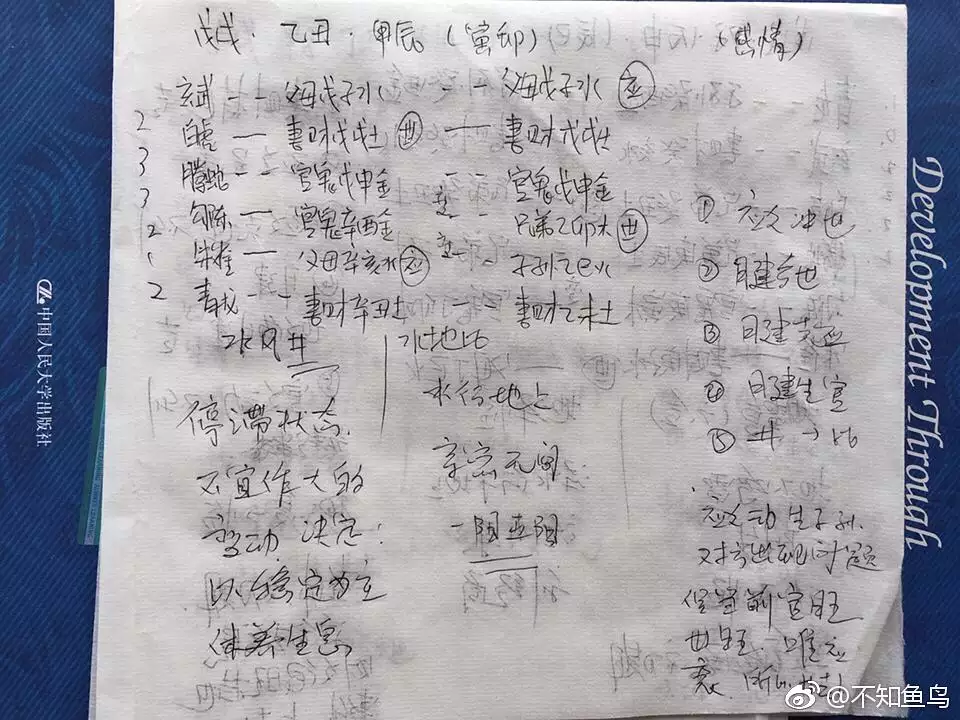 戊戌.乙丑.甲辰(寅卯) (感情)
玄武 -- 父母戊子水 -- 父母戊子水 应
2 白虎 — 妻财戊戌土 世 — 妻财戊戌土
3 腾蛇 -- 官鬼戊申金 -- 官鬼戊申金
3 勾陈 — 官鬼辛酉金 -- 兄弟乙卯木 世
2 朱雀 — 父母辛亥水 应 -- 子孙乙巳火
2 青龙 -- 妻财辛丑土 妻财乙未土
水风井 水地比
停滞状态.
不宜作大的
变动 决定:
以稳定为主
休养生息
水行地上
亲密无间
① 应爻冲世
② 日建合世
③ 日建克应
④ 日建生官
⑤ 井→比
应爻动 生子孙.
世旺. 唯应
衰.
中国人民大学出版社
Development Through
@不知鱼鸟